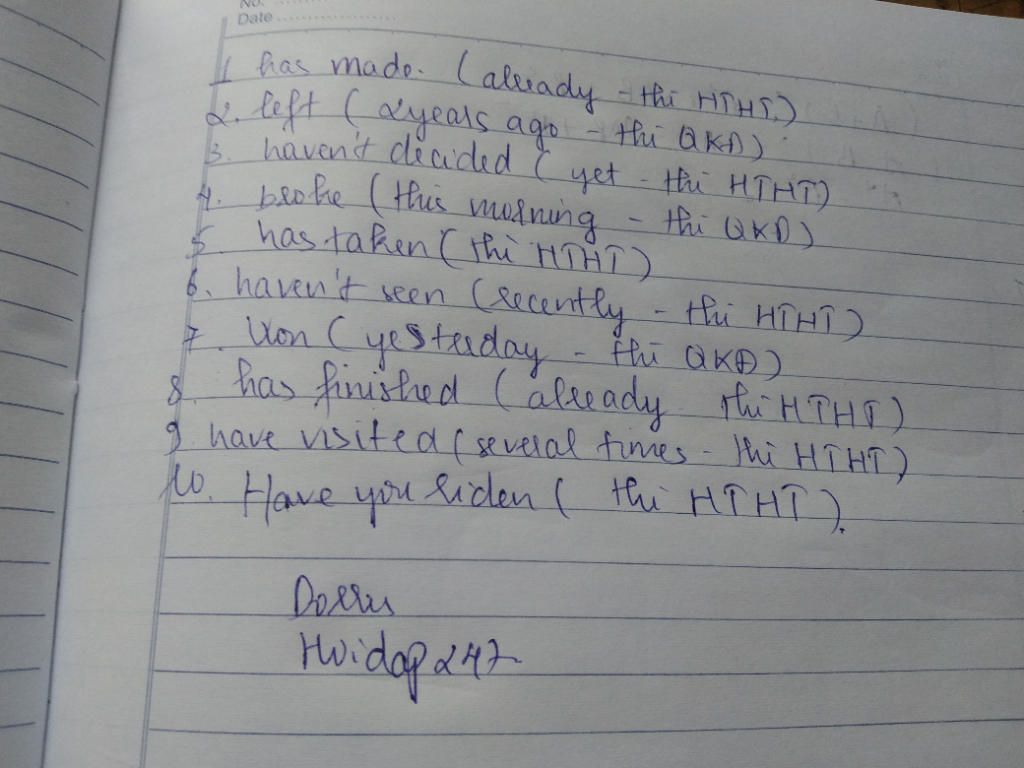 No. ..........
Date ....................
1 has made. (already - thì HTHT.)
2. left ( 2years ago - thì QKĐ)
3. haven't decided ( yet - thì HTHT)
4. broke (this morning - thì QKĐ)
5 has taken ( thì HTHT)
6. haven't seen (recently - thì HTHT)
7. Won ( yesterday - thì QKĐ)
8. has finished ( already thì HTHT)
9. have visited ( several times - thì HTHT)
10. Have you riden ( thì HTHT).
Dorru
Hoidap247